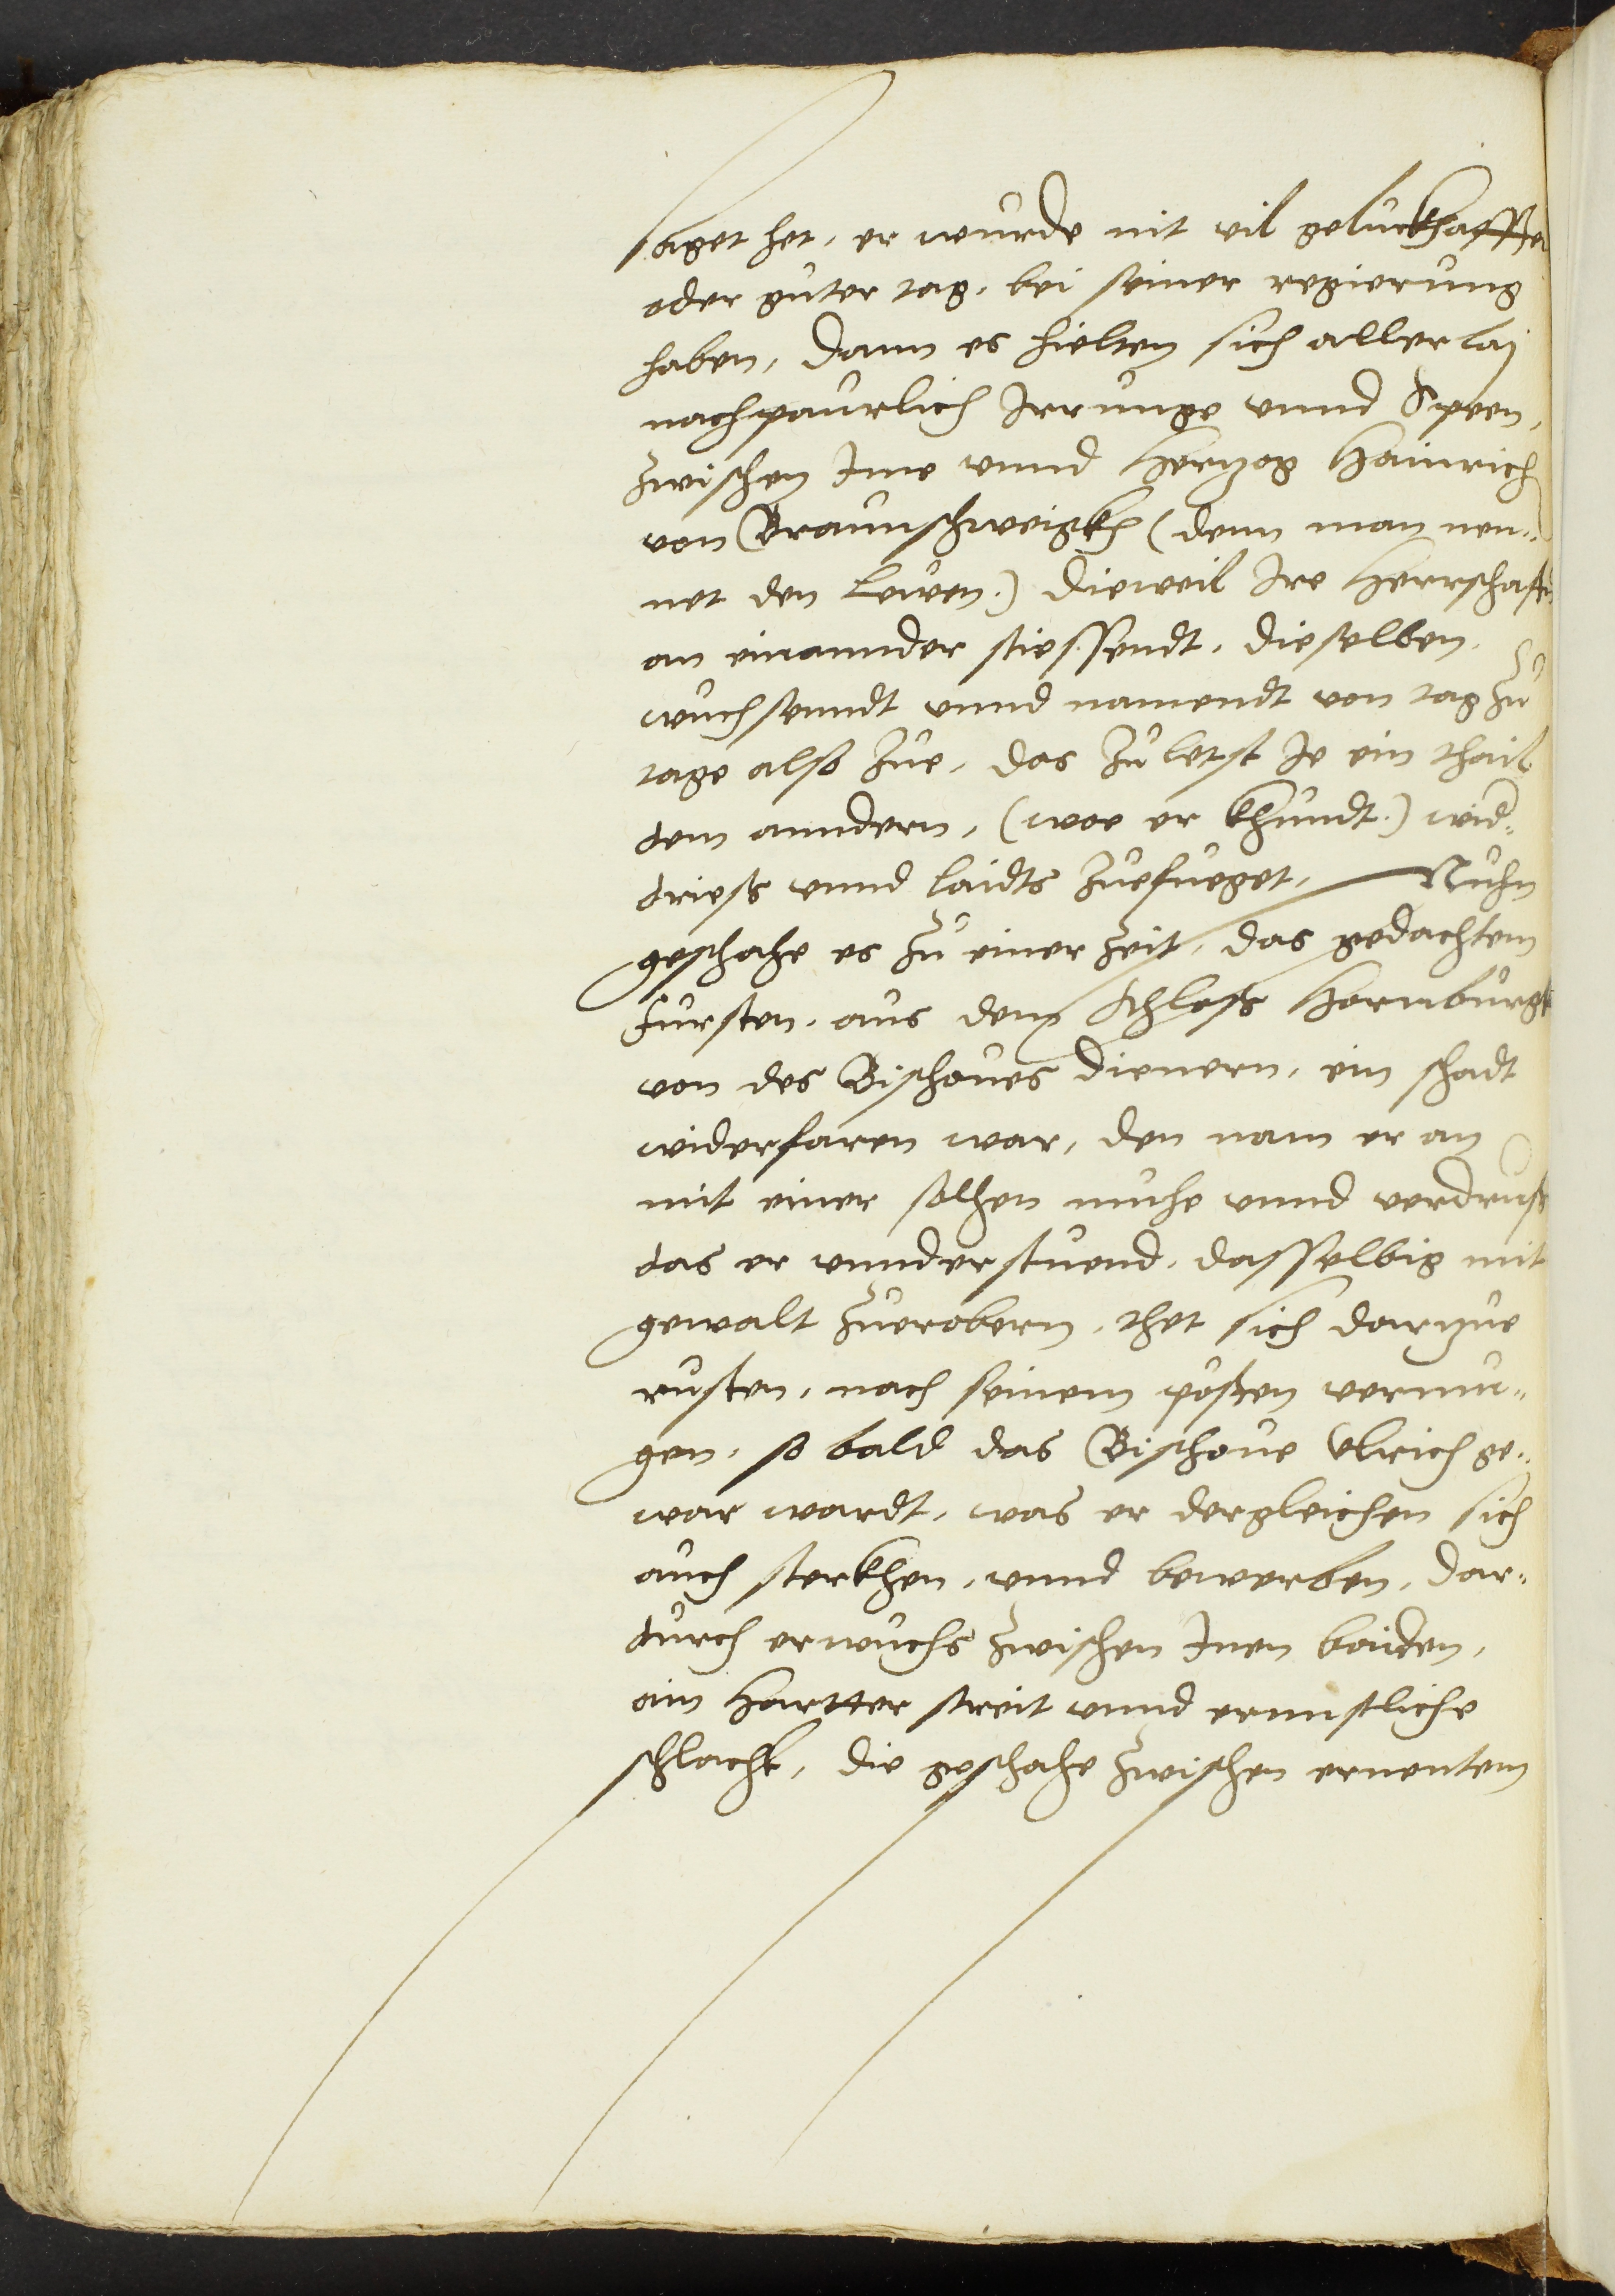 saget het, er wurde nit vil geluckhaffter
oder guter tag, bei seiner regierung
haben, dann es hielten sich allerlaj
nachpaurlich Irrunge vnnd Speen,
zwischen Ime vnnd Hertzog Hainrich
von Braunschweigkh (denn man nen¬
net den Lewen.) dieweil Ire Herrschafft
an einannder stiessendt, dieselben,
wuchsenndt vnnd namendt von tag zu
tage also zue, das zu letst Je ein thail
dem anndern, (woe er khundt.) wid¬
driess vnnd laidts zuefueget, Nuhn
geschahe es zu einer zeit, das gedachtem
fursten, aus dem Schloss Hornburgk
von des Bischoues dienern, ein schadt
widerfaren war, den nam er an
mit einer solhen muhe vnnd verdruss
das er vnnderstuend, dasselbig mit
gewalt zuerobern, thet sich dartzue
rusten, nach seinem posten vermu¬
gen, so bald das Bischoue Vlrich ge¬
war wardt, was er dergleichen sich
auch sterkhen, vnnd bewerben, dar¬
durch erwuchs zwischen Inen baiden,
ain Hartter streit vnnd ernnstliche
schlacht, die geschahe zwischen ernentem